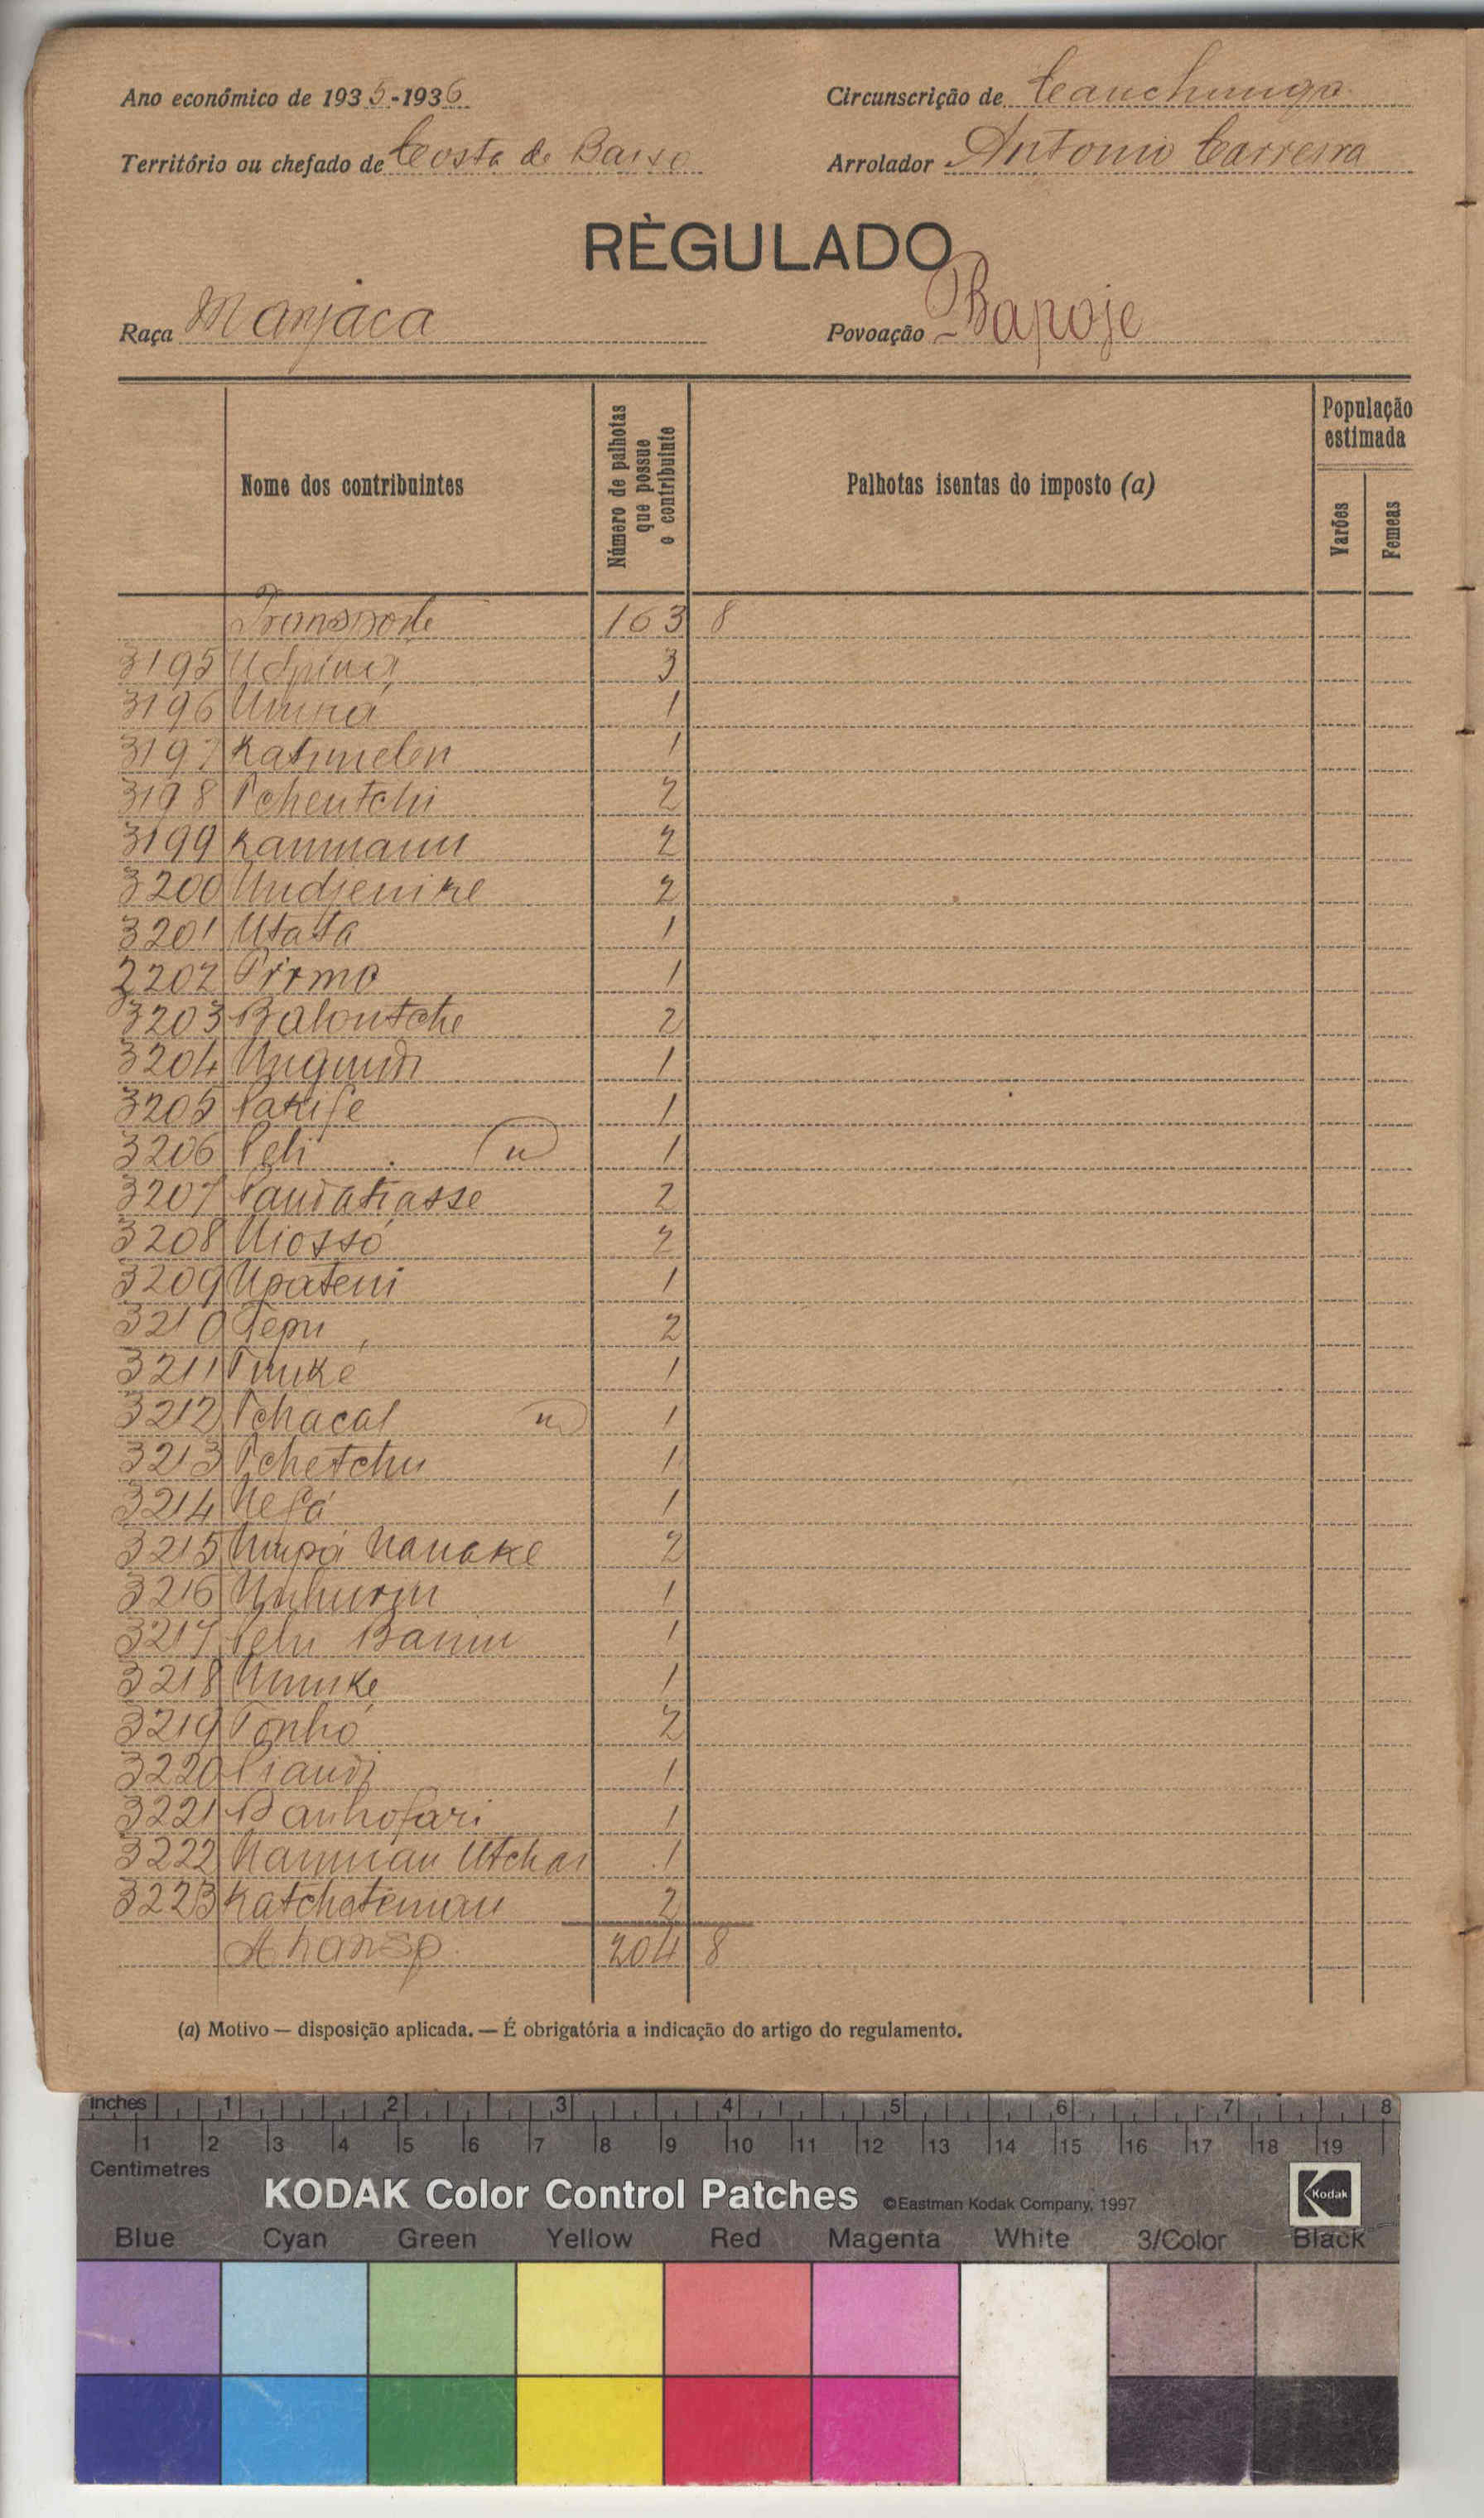 Ano económico de 1935-1936
Circunscrição de Canchungo
Território ou chefado de Costa de Baixo
Arrolador Antonio Carreira
RÈGULADO
Raça Manjaca
Povoação Bapoje
Nome dos contribuintes
Número de palhotas que possue o contribuinte
Palhotas isentas do imposto (a)
População estimada
Varões
Femeas
Transporte 163 8
3195 3
3196 1
3197 Katimelen 1
3198 Tchentchi 2
3199 Kanmann 2
3200 Undjenike 2
3201 Utata 1
2202 Pirmo 1
3203 Baloutche 2
3204 1
3205 Pakife 1
3206 Peli 1
3207 2
3208 Niossó 2
3209 Upateni 1
3210 Tepu 2
3211 1
3212 Tchacal 1
3213 Tchetchu 1
3214 Nefá 1
3215 Nanake 2
3216 1
3217 1
3218 1
3219 Tonhó 2
3220 Piandi 1
3221 Banhofari 1
3222 Utchai 1
3223 Katchateman 2
A transp. 204 8
(a) Motivo — disposição aplicada. — É obrigatória a indicação do artigo do regulamento.
inches 1 2 3 4 5 6 7 8
1 2 3 4 5 6 7 8 9 10 11 12 13 14 15 16 17 18 19
Centimetres
KODAK Color Control Patches ©Eastman Kodak Company, 1997 Kodak
Blue Cyan Green Yellow Red Magenta White 3/Color Black